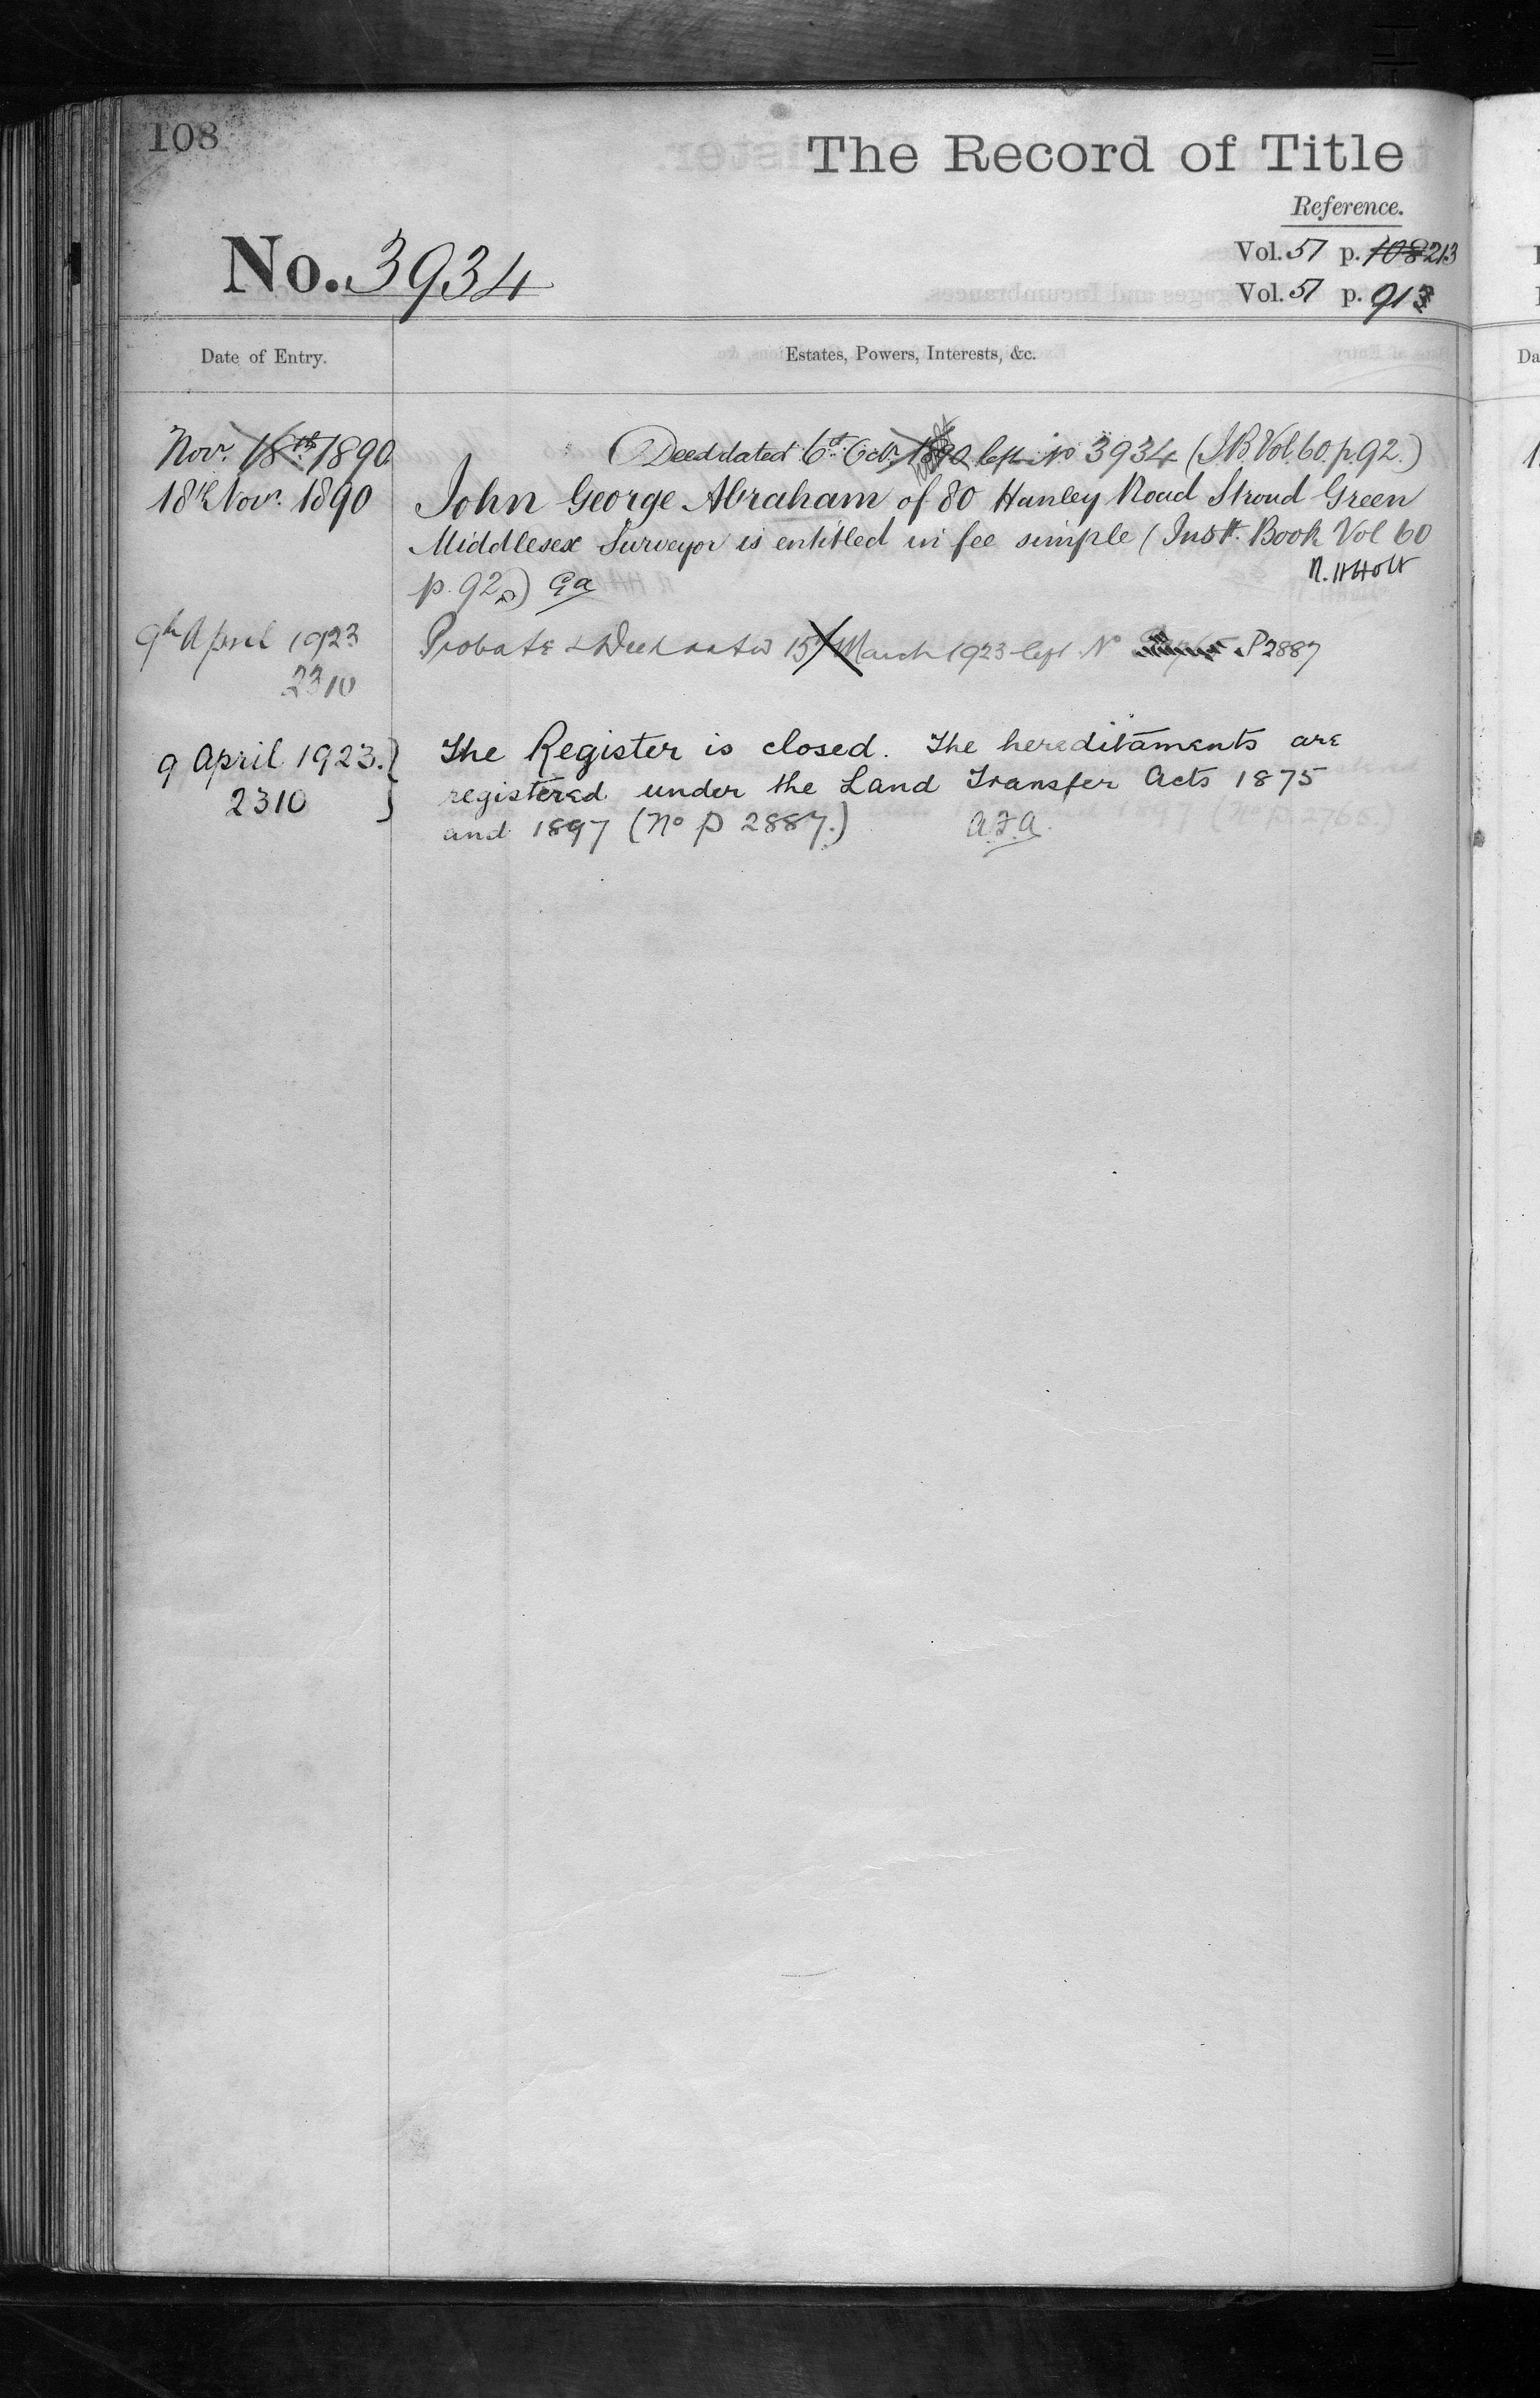 108
The Record of Title
Reference.
No. 3934
Vol. 51 p. 108 213
Vol. 51 p. 913
Date of Entry.
Estates, Powers, Interests, &c.
Novr. 18th 1890
Deed dated 6th Octr. 1890 left No 3934 (I.B. Vol. 60. p. 92.)
18th Novr. 1890
John George Abraham of 80 Hanley Road Stroud Green
Middlesex Surveyor is entitled in fee simple (Inst. Book Vol 60
p. 92.) Ga
9th April 1923
2310
Probate & Deed dated 15th March 1923 left No P2887
9 April 1923.
2310
The Register is closed. The hereditaments are
registered under the Land Transfer Acts 1875
and 1897 (No P 2887.) A.F.A.